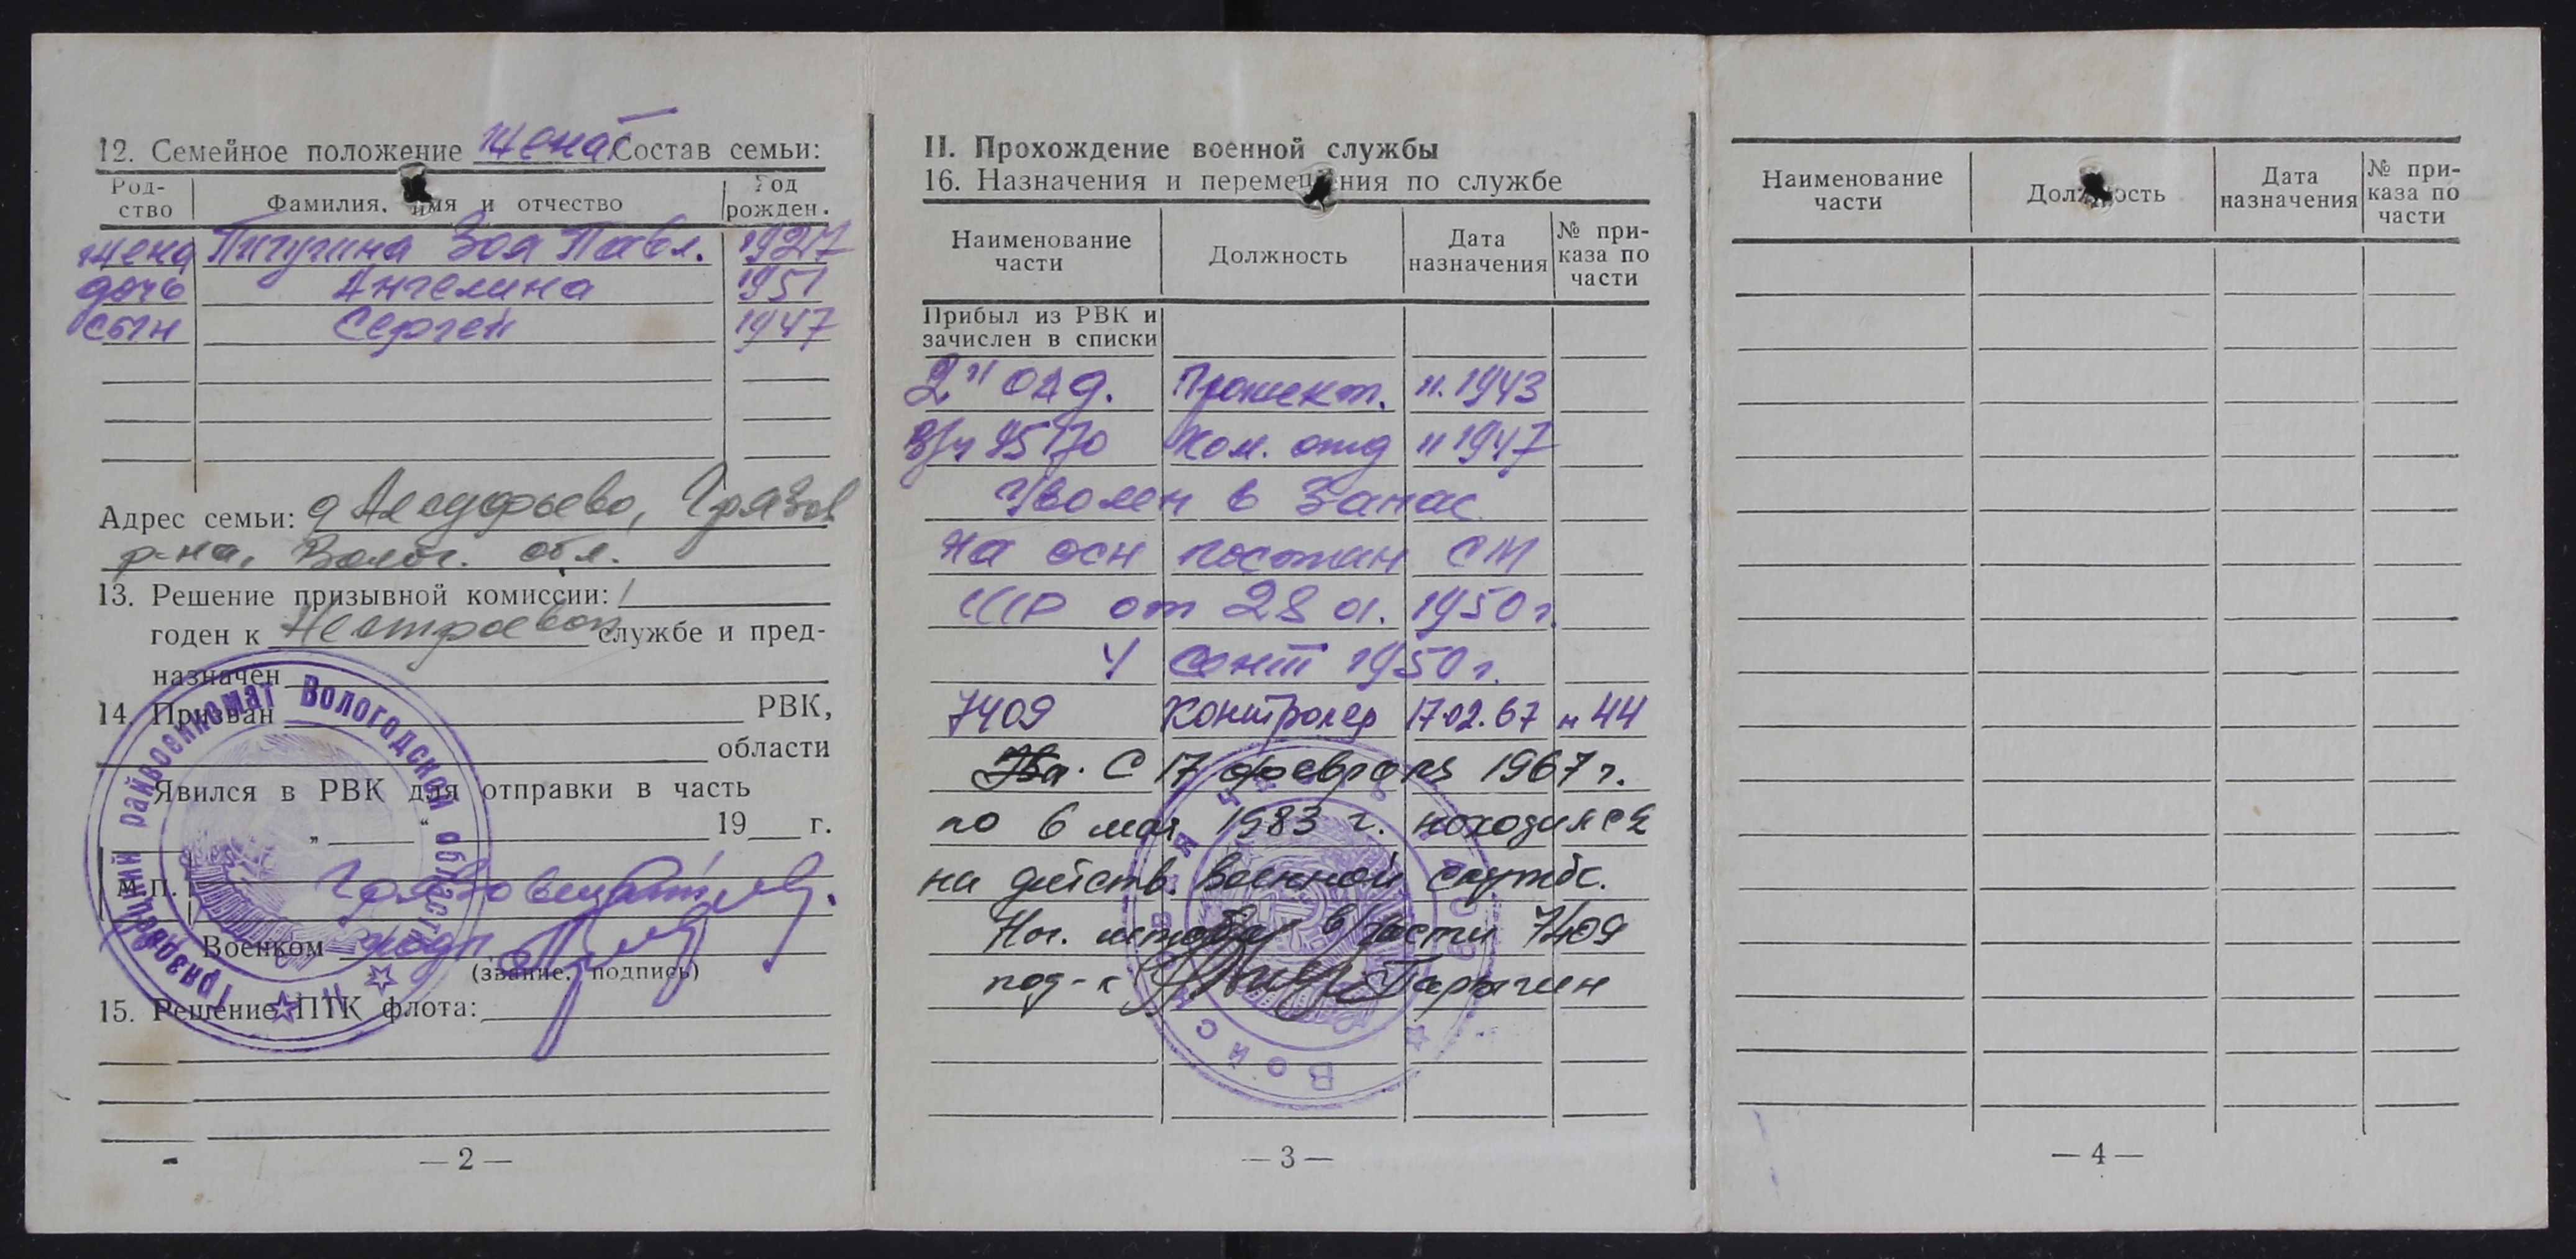 12. Семейное положение женат Состав семьи:
Род-
ство
Фамилия, имя и отчество
Год
рожден.
жена Пичугина Зоя Павл. 1927
дочь Ангелина 1951
сын Сергей 1947
Адрес семьи: д Алсуфьево, Грязов
р-на, Волог. обл.
13. Решение призывной комиссии:
годен к Нестроевой службе и пред-
назначен
14. Призван РВК,
области
Явился в РВК для отправки в часть
„ “ 19 г.
М.П.
Военком
(звание, подпись)
Грязовецкий райвоенкомат Вологодской области
15. Решение ПТК флота:
— 2 —
II. Прохождение военной службы
16. Назначения и перемещения по службе
Наименование
части
Должность
Дата
назначения
№ при-
каза по
части
Прибыл из РВК и
зачислен в списки
Прожект. 1943
в/ч Ком. отд 1947
Уволен в Запас
на осн постан СМ
СССР от 28 01. 1950 г.
1950 г.
7409 Контролер 17.02.67 н 44
С 17 февраля 1967 г.
по 6 мая 1983 г. находился
на действ. военной службе.
Нач. штаба в/части 7409
под-к Тарыгин
Войсковая часть
— 3 —
Наименование
части
Должность
Дата
назначения
№ при-
каза по
части
— 4 —